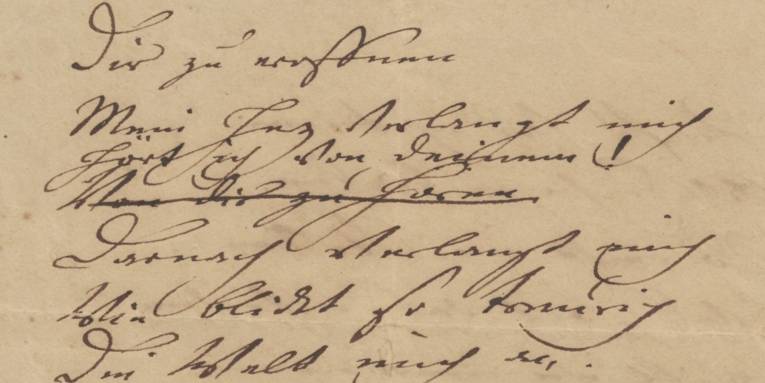 Dir zu eroffnen
Mein Herz verlangt mich
Hört ich von deinem!
Von dir zu horen
Darnach verlangt mich
Wie blickt so traurig
Die Welt mich an.